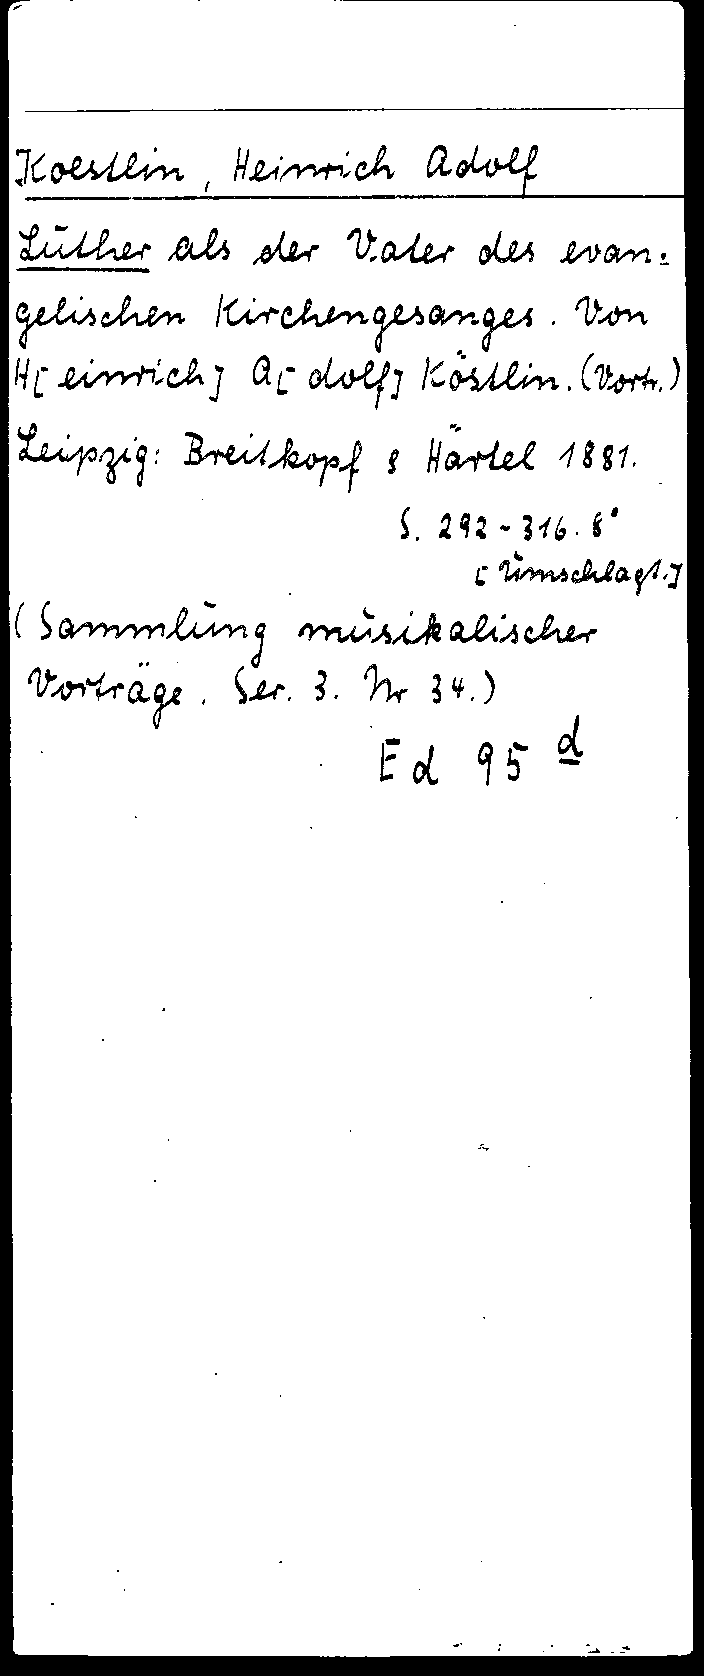 Koestlin, Heinrich Adolf
Luther als der Vater des evan=
gelischen Kirchengesanges. Von
H[einrich] A[dolf] Köstlin. (Vortr.)
Leipzig: Breitkopf & Härtel 1881.
S. 292-316. 8°
[Umschlagt.]
(Sammlung musikalischer
Vorträge. Ser. 3. Nr 34.)
Ed 95 d